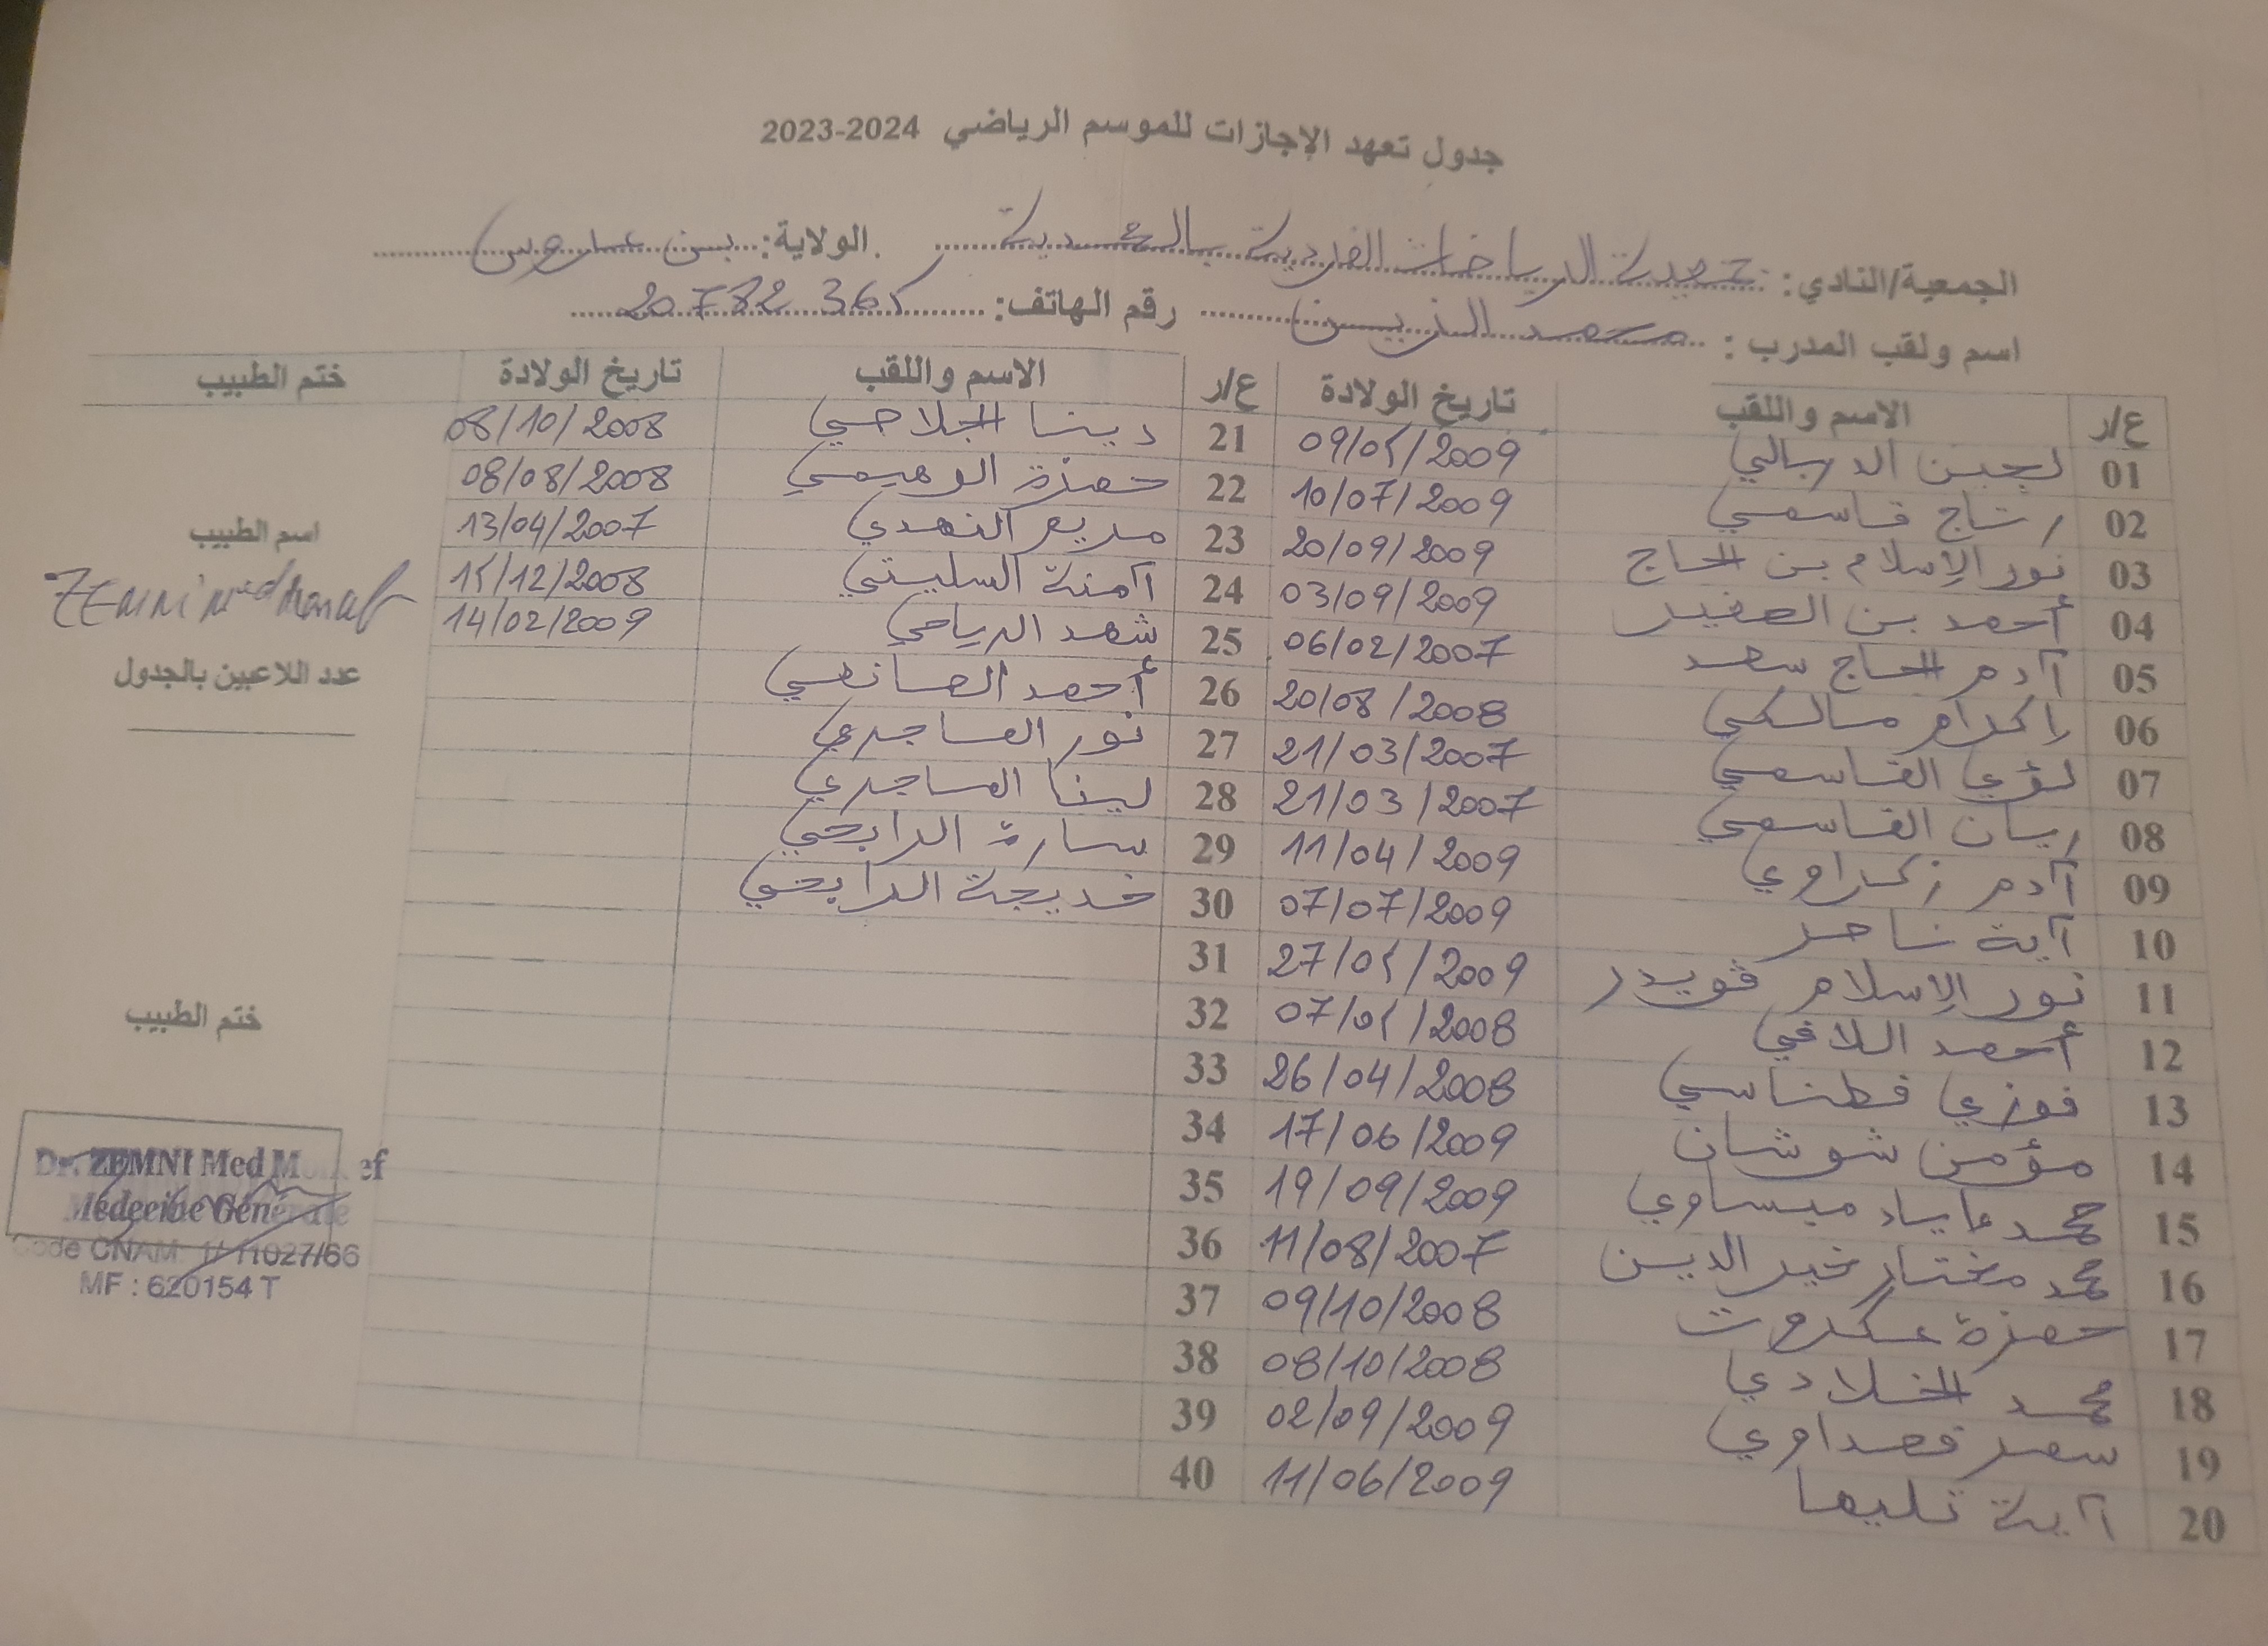 جدول تعهد الإجازات للموسم الرياضي 2023-2024
الجمعية/النادي: جمعية الرياضات الفردية بالمحمدية الولاية: بن عروس
اسم ولقب المدرب: محمد الزين رقم الهاتف: 20 782 365
ع/ر الاسم واللقب تاريخ الولادة
01 لجين الدربالي 09/05/2009
02 رتاج قاسمي 10/07/2009
03 نور الإسلام بن الحاج 20/09/2009
04 أحمد بن الصغير 03/09/2009
05 آدم الحاج سعد 06/02/2007
06 إكرام مالكي 20/08/2008
07 لؤي القاسمي 21/03/2007
08 ريان القاسمي 21/03/2007
09 آدم زكراوي 11/04/2009
10 آية ناجد 07/07/2009
11 نور الإسلام قويدر 27/05/2009
12 أحمد اللافي 07/05/2008
13 فوزي قطناسي 26/04/2008
14 مؤمن شوشان 17/06/2009
15 محمد إياد ميساوي 19/09/2009
16 محمد مختار خير الدين 11/08/2007
17 حمزة عكروت 09/10/2008
18 محمد الخلادي 08/10/2008
19 سعد قمداوي 02/09/2009
20 آية تليها 11/06/2009
ع/ر الاسم واللقب تاريخ الولادة
21 دينا الجلاصي 08/10/2008
22 حمزة الوهيمي 08/08/2008
23 مريم النهدي 13/04/2007
24 آمنة السليتي 15/12/2008
25 شهد الرياحي 14/02/2009
26 أحمد الصانعي
27 نور الماجري
28 لينا الماجري
29 سارة الرابحي
30 خديجة الرابحي
31
32
33
34
35
36
37
38
39
40
ختم الطبيب
اسم الطبيب
ZEMNI Med Moncef
عدد اللاعبين بالجدول
ختم الطبيب
Dr. ZEMNI Med Moncef
Médecine Générale
Code CNAM: 1/11027/66
MF : 620154 T